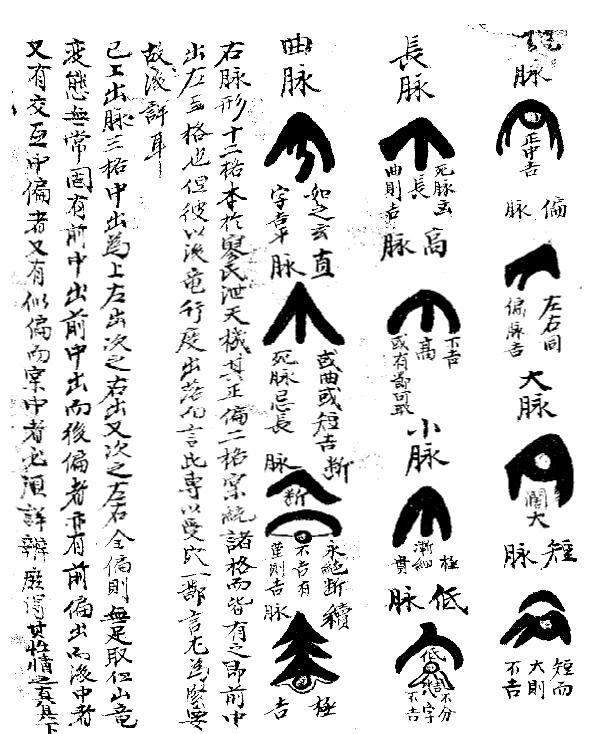 正脉
正中吉
偏脉
左右同
偏脉吉
大脉
濶大
短脉
短而
大則
不吉
長脉
死脉玄
長
曲則吉
高脉
不吉
高
或有節可取
小脉
極
漸細
貴
低脉
不分
字
不吉
曲脉
如之玄
字吉
直脉
或曲或短吉
死脉忌長
斷脉
斷
永絶斷
不吉有
續脉
極
吉
右脉形十二格本於廖氏泄天機其正偏二格寔統諸格而皆有之即前中
出左右格也但彼以後龍行度出落而言此專以受穴一節言尤為緊要
故復詳耳
已上出脉三格中出為上左出次之右出又次之左右全偏則無足取但山龍
変態無常固有前中出前中出而後偏者亦有前偏出而後中者
又有交互中偏者又有似偏而寔中者必須詳辨庶得其性情之真具下